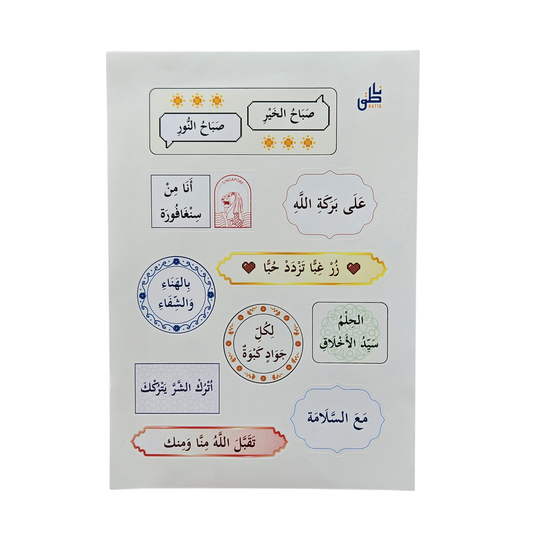 ناطق
NATIQ
صَبَاحُ الخَيْرِ
صَبَاحُ النُّورِ
أَنَا مِنْ
سِنْغَافُورَة
SINGAPORE
عَلَى بَرَكَةِ اللَّهِ
زُرْ غِبًّا تَزْدَدْ حُبًّا
بِالهَنَاءِ
وَالشِّفَاءِ
لِكُلِّ
جَوَادٍ كَبْوَةٌ
الحِلْمُ
سَيِّدُ الأَخْلَاقِ
اُتْرُكْ الشَّرَّ يَتْرُكْكَ
مَعَ السَّلَامَة
تَقَبَّلَ اللَّهُ مِنَّا وَمِنك